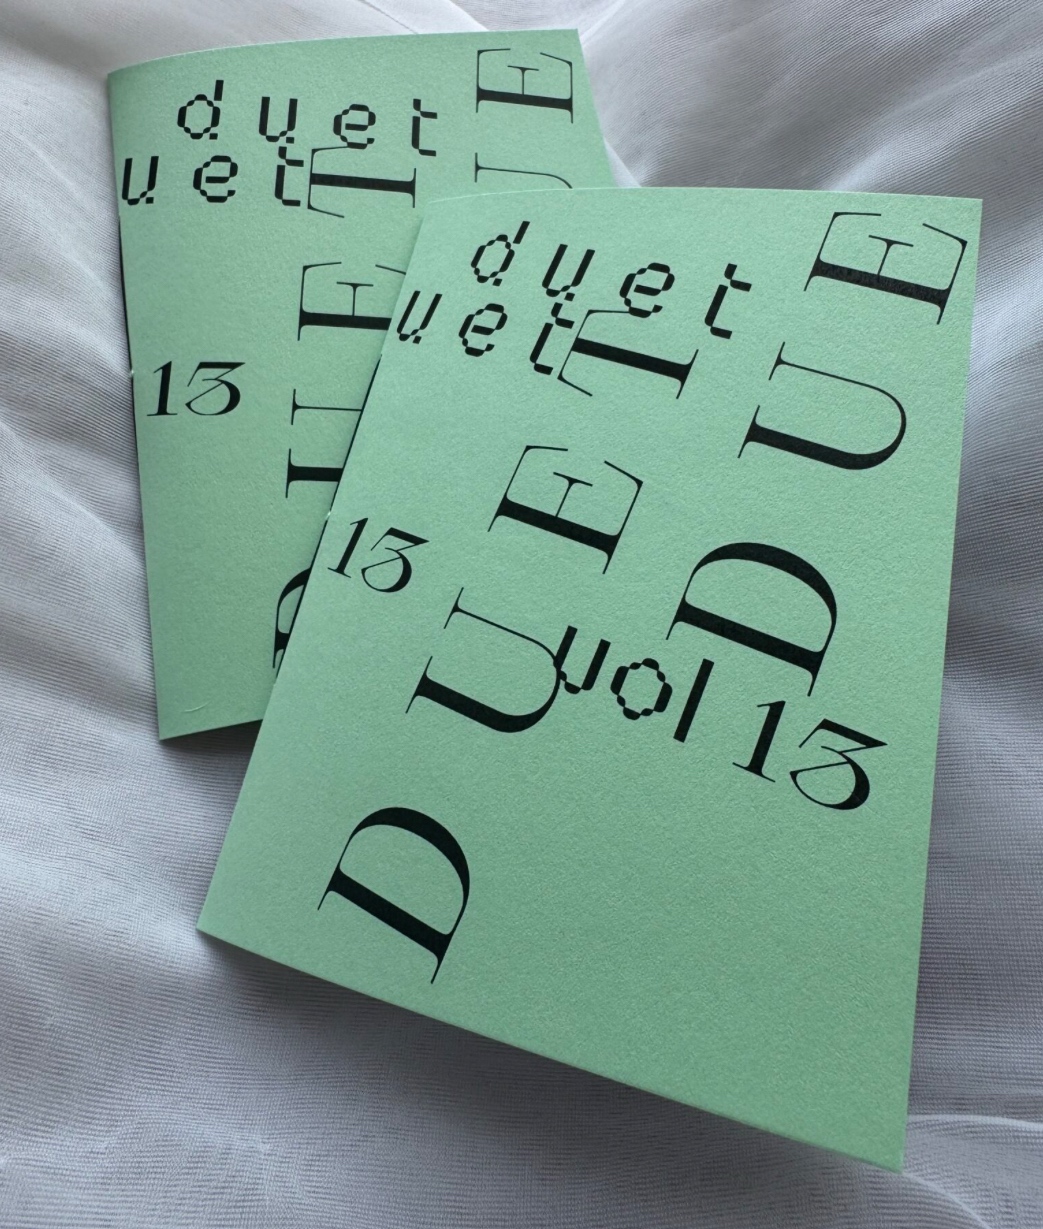 duet
uet
DUET
DUE
13
duet
uet
13
vol 13
DUET
DUE